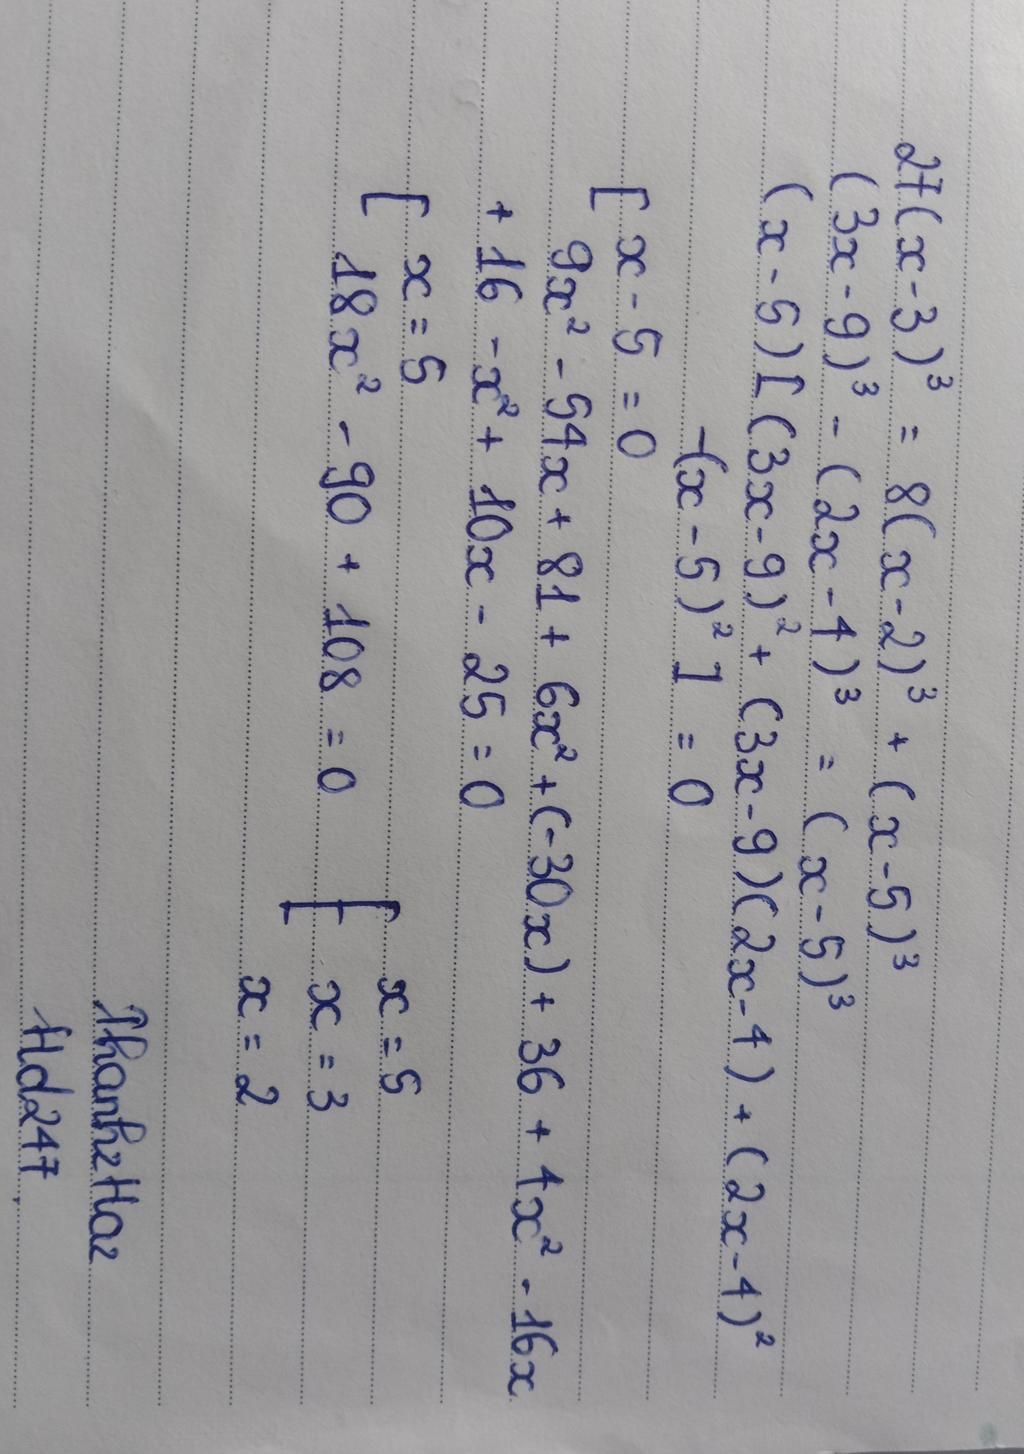 27(x-3)³ = 8(x-2)³ + (x-5)³
(3x-9)³ - (2x-4)³ = (x-5)³
(x-5)[(3x-9)² + (3x-9)(2x-4) + (2x-4)²
-(x-5)²] = 0
[ x-5 = 0
9x² - 54x + 81 + 6x² + (-30x) + 36 + 4x² - 16x
+ 16 - x² + 10x - 25 = 0
[ x = 5
18x² - 90 + 108 = 0
[ x = 5
x = 3
x = 2
Thanh2Ha2
Hd247